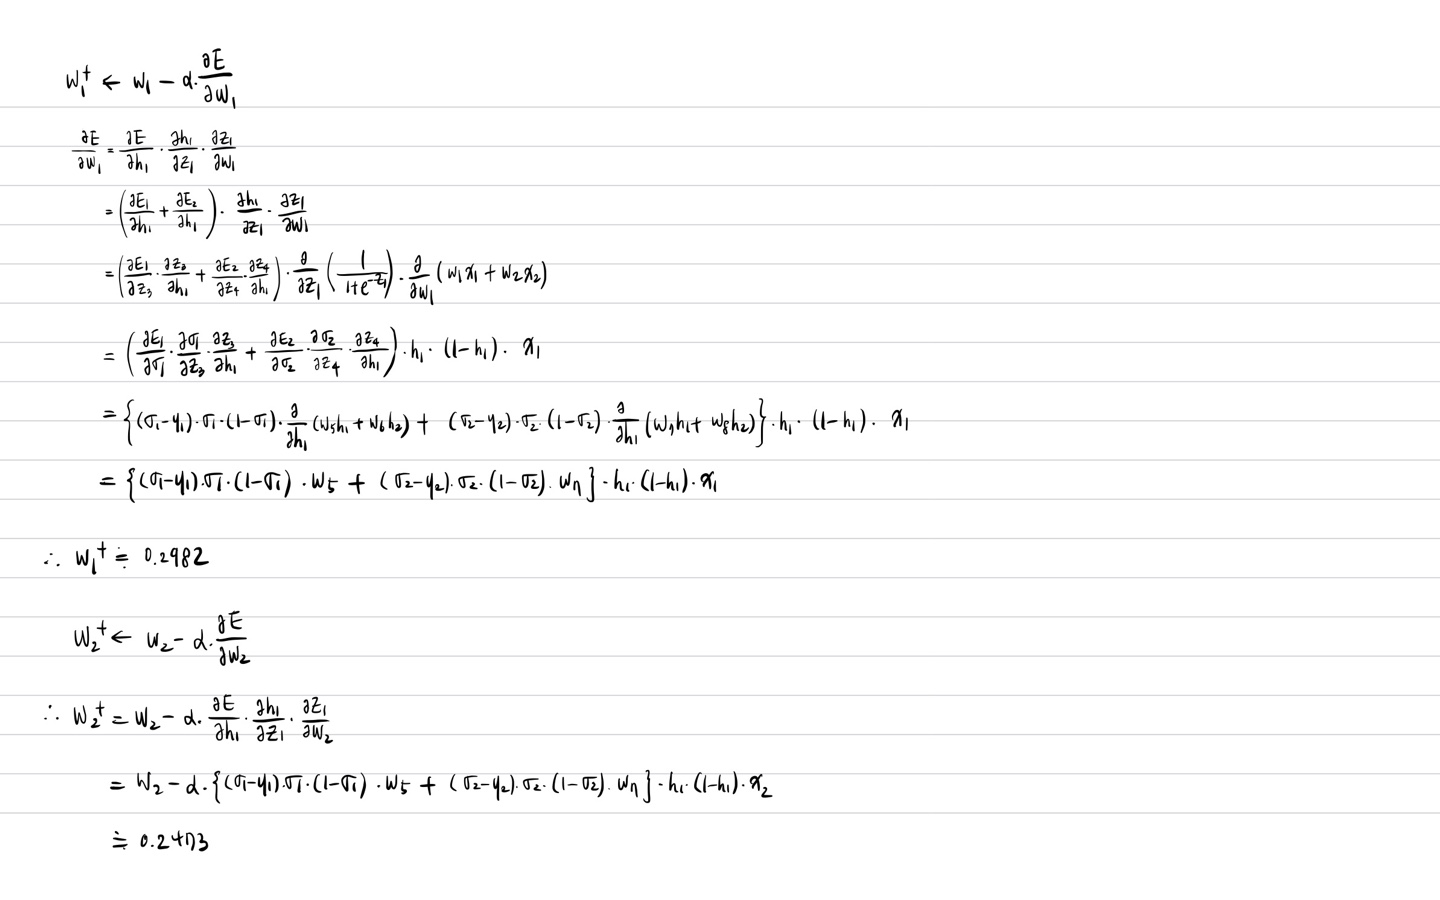 w₁⁺ ← w₁ − α·∂E/∂w₁
∂E/∂w₁ = ∂E/∂h₁ · ∂h₁/∂z₁ · ∂z₁/∂w₁
= (∂E₁/∂h₁ + ∂E₂/∂h₁) · ∂h₁/∂z₁ · ∂z₁/∂w₁
= (∂E₁/∂z₃ · ∂z₃/∂h₁ + ∂E₂/∂z₄ · ∂z₄/∂h₁) · ∂/∂z₁ (1/(1+e^(−z₁))) · ∂/∂w₁ (w₁x₁ + w₂x₂)
= (∂E₁/∂σ₁ · ∂σ₁/∂z₃ · ∂z₃/∂h₁ + ∂E₂/∂σ₂ · ∂σ₂/∂z₄ · ∂z₄/∂h₁) · h₁ · (1−h₁) · x₁
= {(σ₁−y₁)·σ₁·(1−σ₁) · ∂/∂h₁ (w₅h₁ + w₆h₂) + (σ₂−y₂)·σ₂·(1−σ₂) · ∂/∂h₁ (w₇h₁ + w₈h₂)} · h₁ · (1−h₁) · x₁
= {(σ₁−y₁)·σ₁·(1−σ₁) · w₅ + (σ₂−y₂)·σ₂·(1−σ₂) · w₇} · h₁·(1−h₁)·x₁
∴ w₁⁺ ≒ 0.2982
w₂⁺ ← w₂ − α·∂E/∂w₂
∴ w₂⁺ = w₂ − α · ∂E/∂h₁ · ∂h₁/∂z₁ · ∂z₁/∂w₂
= w₂ − α·{(σ₁−y₁)·σ₁·(1−σ₁) · w₅ + (σ₂−y₂)·σ₂·(1−σ₂) · w₇} · h₁·(1−h₁)·x₂
≒ 0.2473